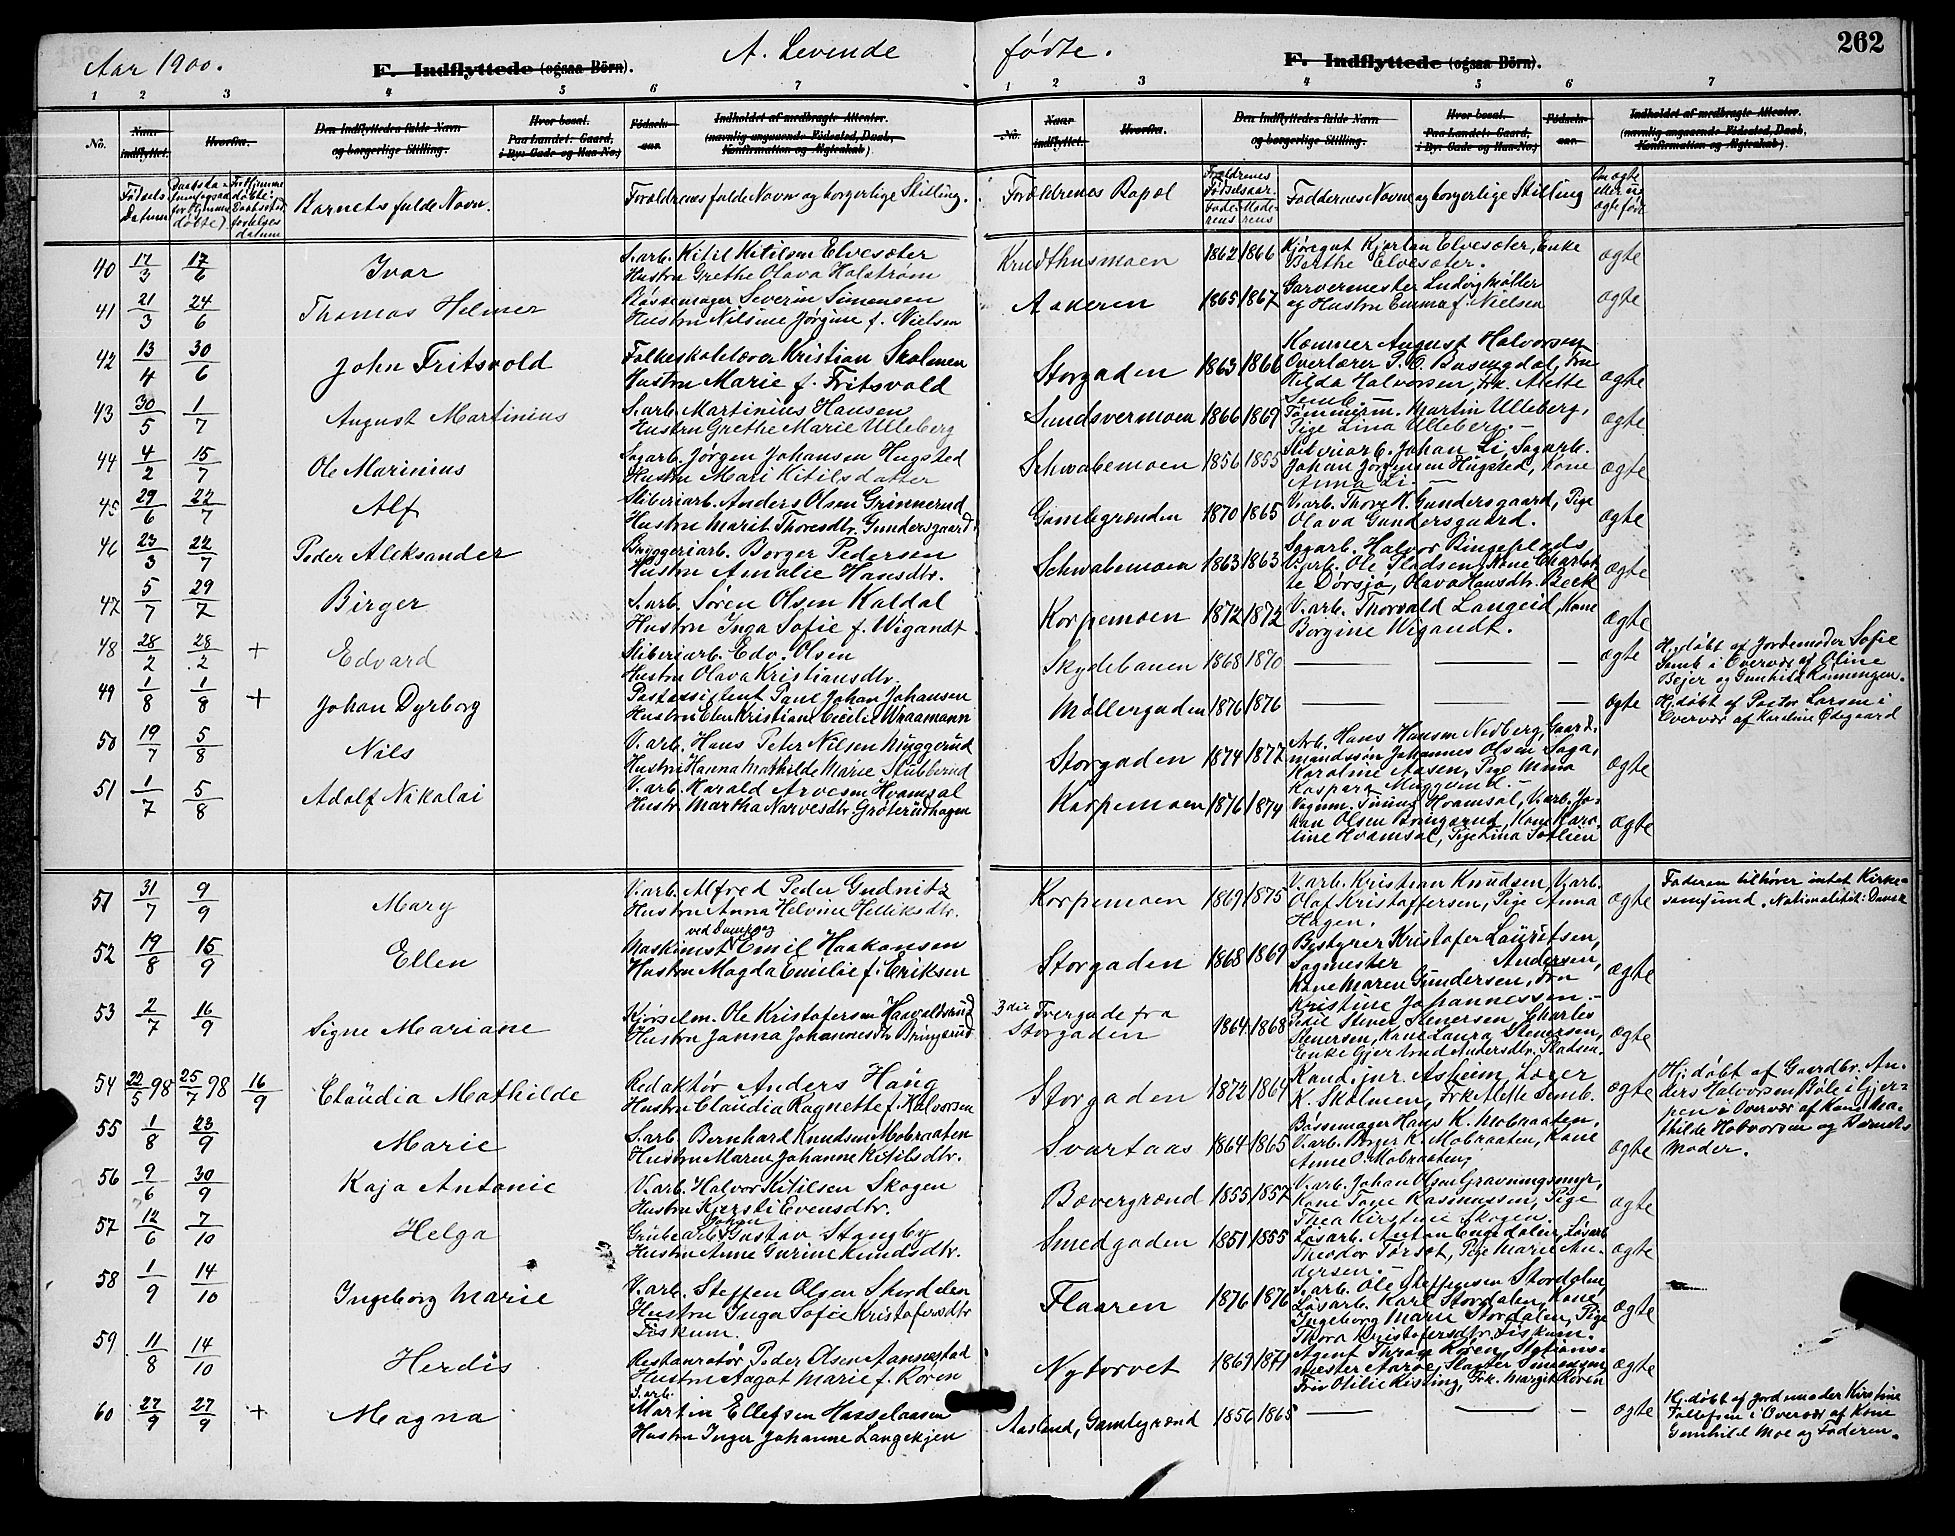 Aar 1900.
E. Indflyttede (ogsaa Börn).
A. Levende
fødte.
F. Indflyttede (ogsaa Börn).
262
1 2 3 4 5 6 7
1 2 3 4 5 6 7
No.
Naar indflyttet.
Hvorfra.
Den Indflyttedes fulde Navn og borgerlige Stilling.
Hvor bosat. Paa Landet: Gaard, i By: Gade og Hus-No.
Födsels-aar.
Indholdet af medbragte Attester. (navnlig angaaende Födested, Daab, Konfirmation og Ægteskab).
No.
Naar indflyttet.
Hvorfra.
Den Indflyttedes fulde Navn og borgerlige Stilling.
Hvor bosat. Paa Landet: Gaard, i By: Gade og Hus-No.
Födsels-aar.
Indholdet af medbragte Attester. (navnlig angaaende Födested, Daab, Konfirmation og Ægteskab).
Fødsels Datum
Barnets fulde Navn.
Forældrenes fulde Navn og borgerlige Stilling.
Forældrenes Bopæl
Forældrenes Fødselsaar.
Faddernes Navne og borgerlige Stilling
Om ægte eller uægte født
40 17/3 17/6 Ivar
S.arb. Kitil Kitilsen Elvesæter
Hustru Grethe Olava Holstrøm
Krudthusmoen 1862 1866
Kjøregut Kjartan Elvesæter, Enke
Berthe Elvesæter. ægte
41 21/3 24/6 Thomas Helmer
Bøssemager Severin Simonsen
Hustru Nilsine Jørgine f. Nielsen
Aaderen 1865 1867
Garvermester Ludvig Møller
og Hustru Emma f. Nielsen ægte
42 13/4 30/6 John Fritsvold
Folkeskolelærer Kristian Skolmen
Hustru Marie f. Fritsvold
Storgaden 1863 1866
Kæmner August Halvorsen
Overlærer P. O. Busengdal, Fru
Hilda Halvorsen, Frk. Alette
Semb. — ægte
43 30/5 1/7 August Martinius
S.arb. Martinius Hansen
Hustru Grethe Marie Ulleberg
Sundsvermoen 1866 1869
Tømmerm. Martin Ulleberg,
Pige Lina Ulleberg. — ægte
44 4/2 15/7 Ole Marinius
Sagarb. Jørgen Johansen Hugsted
Hustru Mari Kitilsdatter
Schwabemoen 1856 1855
Sliberiarb. Johan Li, Sagarb.
Johan Jørgensen Hugsted, Kone
Anna Li — ægte
45 29/6 22/7 Alf
Sliberiarb. Anders Olsen Grinnerud
Hustru Marit Thoresdtr. Gundersgaard
Gamlegrænden 1870 1865
V.arb. Thore N. Gundersgaard, Pige
Olava Gundersgaard. ægte
46 23/3 22/7 Peder Aleksander
Bryggeriarb. Borger Pedersen
Hustru Amalie Hansdtr.
Schwabemoen 1863 1863
Sagarb. Halvor Bingeplads
V.arb. Ole Pladsen, Kone Charlot-
te Dørsjø, Olava Hansdtr. Beck ægte
47 5/7 29/7 Birger
S.arb. Søren Olsen Kaldal
Hustru Inga Sofie f. Wigandt
Korpemoen 1872 1872
V.arb. Thorvald Langeid, Kone
Borgine Wigandt. ægte
48 28/2 28/2 + Edvard
Sliberiarb. Edv. Olsen
Hustru Olava Kristiansdtr.
Skydebanen 1868 1870 — — — ægte
Hj.døbt af Jordemoder Sofie
Semb i Overvær af Eline
Bejer og Gunhild Rønningen.
49 1/8 1/8 + Johan Dyrborg
Postassistent Paul Johan Johansen
Hustru Elen Kristiane Cecilie Wraamann
Møllergaden 1876 1876 — — — ægte
Hj.døbt af Pastor Larsen i
Overvær af Karoline Ødegaard
50 19/7 5/8 Nils
V.arb. Hans Peter Nilsen Muggerud
Hustru Hanna Mathilde Marie Stubberud
Storgaden 1874 1877
Arb. Hans Hansen Nedberg, Gaard-
mandssøn Johannes Olsen Saga,
Karoline Aasen, Pige Mina
Kaspara Muggerud. ægte
51 1/7 5/8 Adolf Nikolai
V.arb. Harald Arvesen Hvamsal
Hustr. Martha Narvesdtr. Grøterudhagen
Korpemoen 1876 1874
Vognm. Tinius Hvamsal, V.arb. Jo-
han Olsen Bringerud, Kone Karo-
line Hvamsal, Pige Lina Sotlien ægte
51 31/7 9/9 Mary
V.arb. Alfred Peder Gudnitz
Hustru Anna Helvine Helliksdtr.
Korpemoen 1869 1875
V.arb. Kristian Knudsen, V.arb.
Olaf Kristoffersen, Pige Anna
Hagen. ægte
Faderen tilhører intet Kirke-
samfund. Nationalitet: Dansk
52 19/8 15/9 Ellen
ved Dampsag
Maskinist Emil Haakonsen
Hustru Magda Emilie f. Eriksen
Storgaden 1868 1869
Bestyrer Kristofer Lauritsen,
Sagmester Andersen,
Kone Maren Gundersen, Fru
Kristine Johannessen. — ægte
53 2/7 16/9 Signe Mariane
Kjørselm. Ole Kristofersen Haavaldsrud
Hustru Janna Johannesdtr. Bringerud
3die Tvergade fra
Storgaden 1864 1868
Stenersen, Charles
Stenersen, Kone Laura Stenersen,
Enke Gjertrud Andersdtr. Pladsen. ægte
54 22/5 98 25/7 98 16/9 Claudia Mathilde
Redaktør Anders Haug
Hustru Claudia Ragnette f. Halvorsen
Storgaden 1872 1864
Kand. jur. Asheim, Lærer
K. Skolmen, Frk. Alette Semb. ægte
Hj.døbt af Gaardbr. An-
ders Halvorsen Bøle i Gjer-
pen i Overvær af Kone Ma-
thilde Halvorsen og Barnets
Moder.
55 1/8 23/9 Marie
S.arb. Bernhard Knudsen Mobraaten
Hustru Maren Johanne Kitilsdtr.
Svartaas 1864 1865
Bøssemager Hans K. Mobraaten,
V.arb. Borger K. Mobraaten, Kone
Anne O. Mobraaten, ægte
56 9/6 30/9 Kaja Antonie
V.arb. Halvor Kitilsen Skogen
Hustru Kjersti Evensdtr.
Bævergrænd 1855 1857
V.arb. Johan Olsen Gravningsmyr,
Kone Tone Rasmussen, Pige
Thea Kirstine Skogen. ægte
57 12/6 7/10 Helga
Grubearb. Johan Gustav Stangeby
Hustru Anne Gurine Knudsdtr.
Smedgaden 1851 1855
Løsarb. Anton Engedalen, Løsarb
Theodor Torsøt, Pige Marie An-
dersen. — ægte
58 1/9 14/10 Ingeborg Marie
V.arb. Steffen Olsen Stordalen
Hustru Inga Sofie Kristofersdtr
Fiskum.
Flaaren 1876 1876
S.arb. Ole Steffensen Stordalen,
Løsarb. Karl Stordalen, Kone
Ingeborg Marie Stordalen, Pige
Thora Kristofersdtr. Fiskum. ægte
59 11/8 14/10 Herdis
Restauratør Peder Olsen Aannestad
Hustru Aagot Marie f. Koren
Nytorvet 1869 1871
Agent Thrap Koren, Stations-
mester Aarøe, Slagter Simonsen,
Fru Otilie Kisting, Frk. Margit Koren ægte
60 27/9 27/9 + Magna
S.arb.
Martin Ellefsen Hasselaasen
Hustru Inger Johanne Langekjen
Aasland, Gamlegrænd 1856 1865 — — — ægte
Hj.døbt af Jordemoder Kirstine
Tollefsen i Overvær af Kone
Gunhild Moe og Faderen.